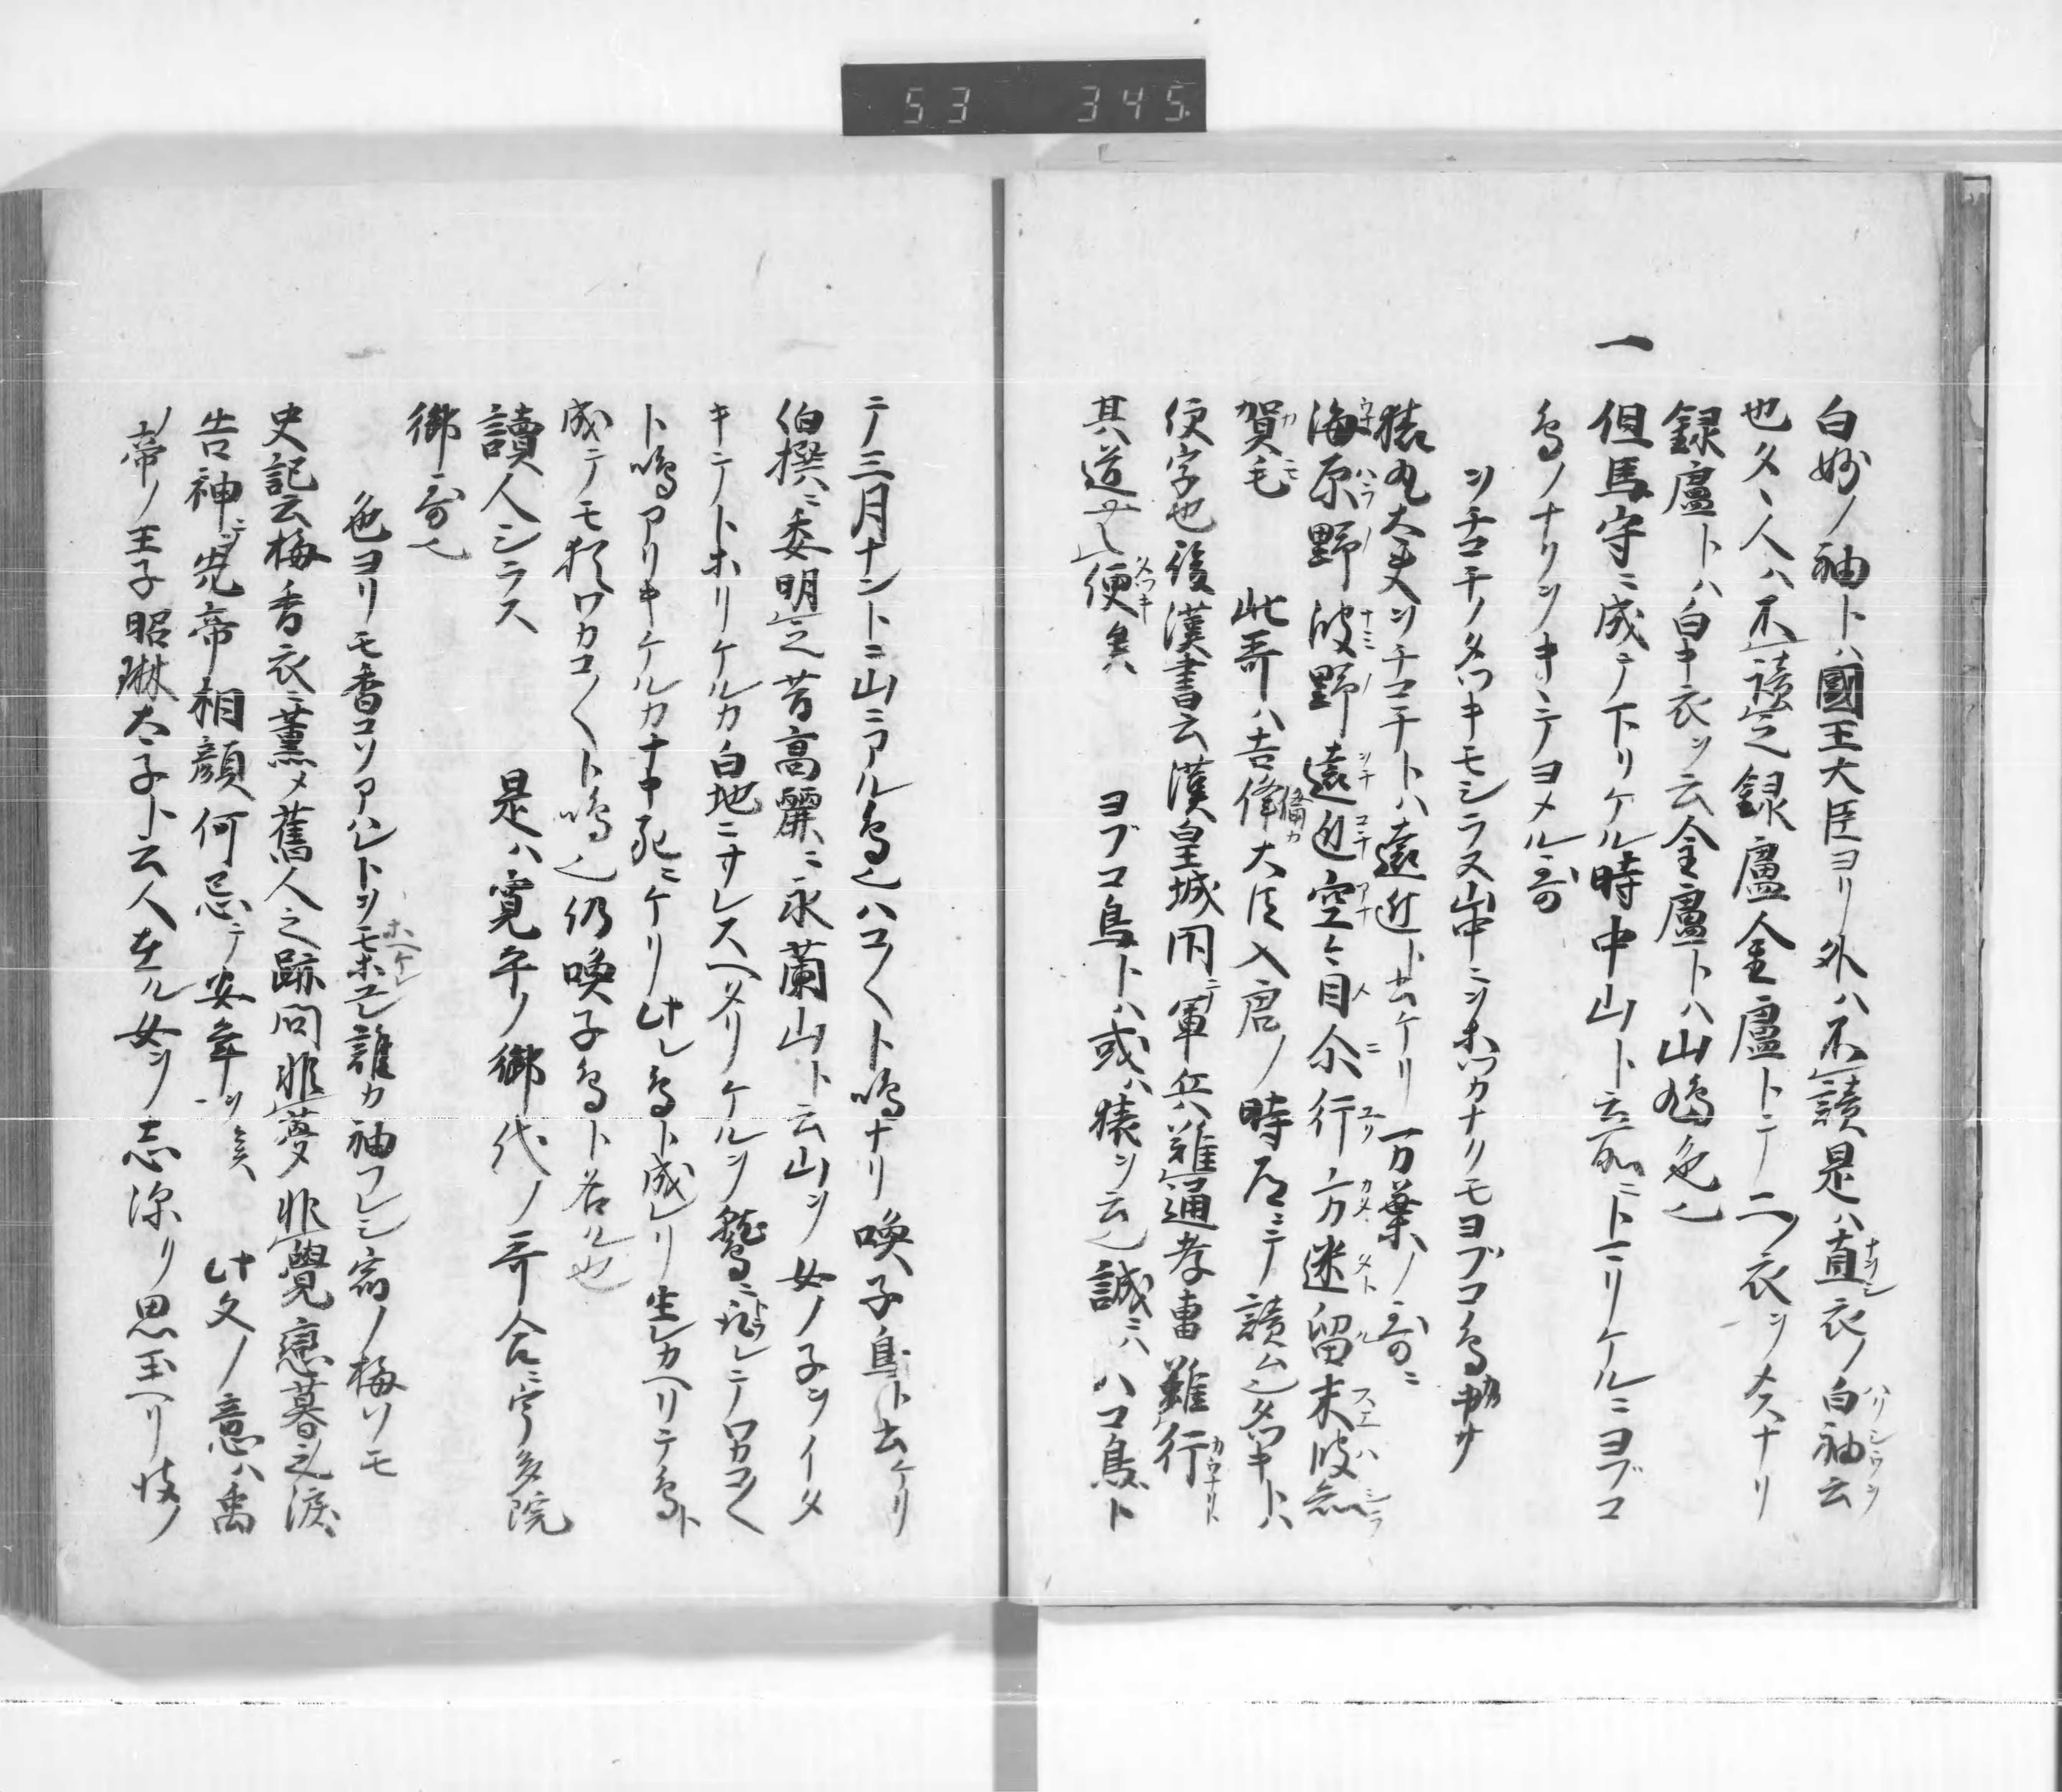 53 345
白妙ノ袖トハ國王大臣ヨリ外ハ不讀是ハ直衣ノ白袖云
也タヽ人ハ不讀之録盧金盧トテ二ノ衣ヲメスナリ
録盧トハ白キ衣ヲ云金盧トハ山鳩色也
一 但馬守ニ成テ下リケル時中山ト云所ニトマリケルニヨブコ
鳥ノナクヲキヽテヨメル哥
ヲチコチノタツキモシラヌ山中ニヲホツカナクモヨブコ鳥カナ
猿丸大夫ヲチコチトハ遠近ト書ケリ万葉ノ哥ニ
海原野波野遠近空々目尓行方迷留末波志
賀毛 此哥ハ吉備大臣入唐ノ時舟ニテ讀ム也タツキトハ
便字也後漢書云漢皇城閇テ軍兵難通孝車難行
其道無便矣 ヨブコ鳥トハ或ハ猿ヲ云也誠ニハハコ鳥ト
テ三月ナントニ山ニアル鳥也ハコ〱ト鳴ナリ喚子鳥ト書ケリ
伯撰ニ委明之昔高麗ニ永蘭山ト云山ヲ女ノ子ヲイタ
キテトホリケルカ白地ニサレスヘタリケルヲ鷲ニトラレテワカコ〱
ト鳴アリキケルカナキ死ニケリ此レ鳥ト成レリ生レカヘリテ鳥ト
成テモ猶ワカコ〱ト鳴也仍喚子鳥ト名ル也
讀人シラス 是ハ寛平ノ御代ノ哥合ニ宇多院
御哥也
一 色ヨリモ香コソアハレトヲモホユレ誰カ袖フレシ宿ノ梅ソモ
史記云梅香衣ニ薫メ舊人之跡問非夢非覺戀暮之涙
告神ニ堯帝相顔何忘テ安年ヲ矣 此文ノ意ハ禹
ノ帝ノ王子昭琳太子ト云人在ル女ヲ志深ク思玉ヘリ彼ノ